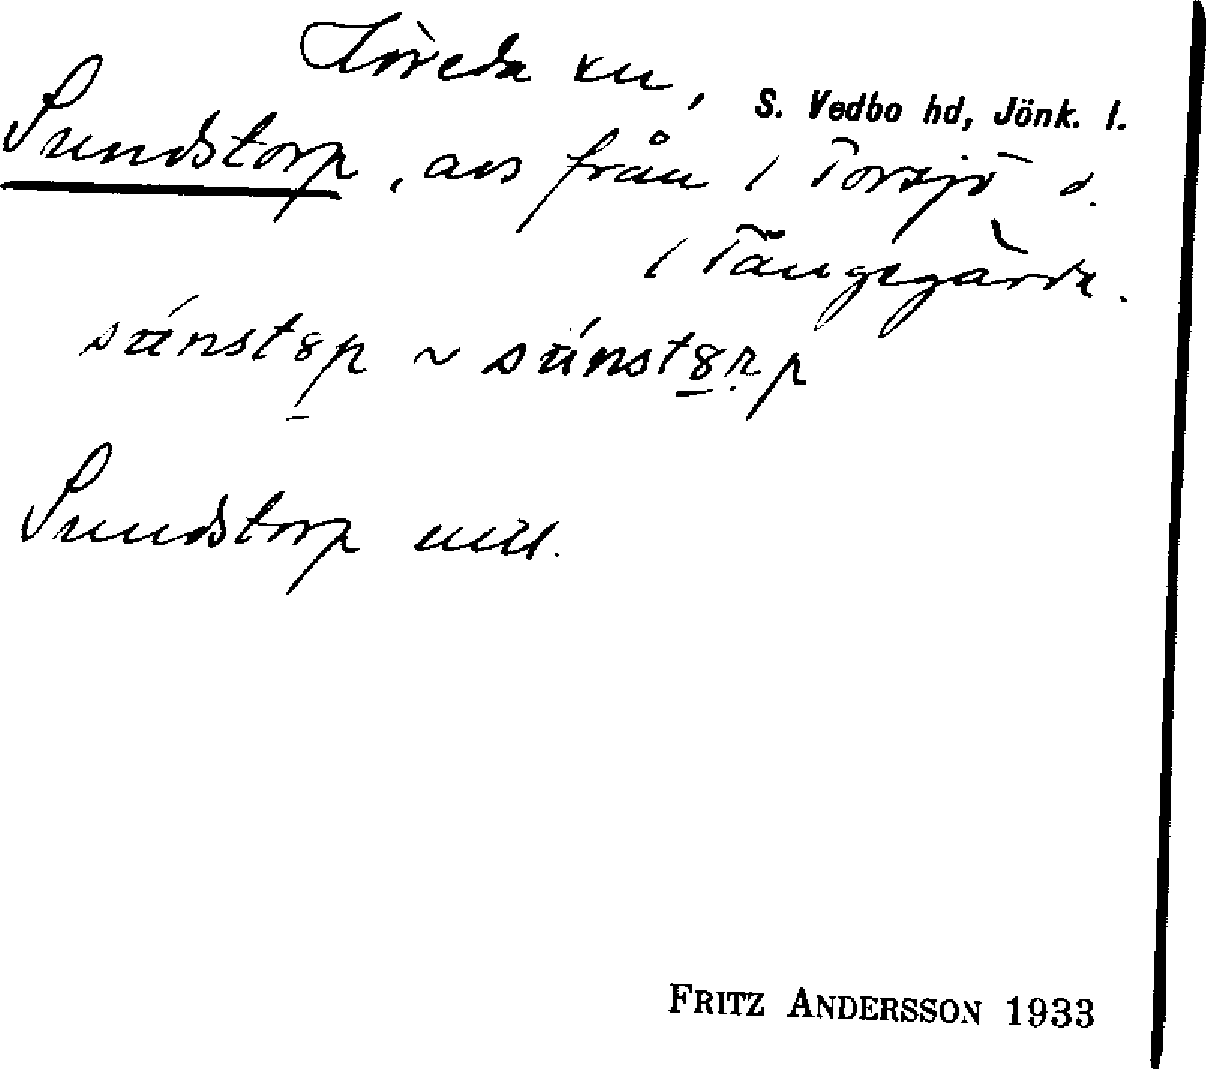 Höreda sn, S. Vedbo hd, Jönk. l.
Sundstorp, avs från 1 Torsjö o.
1 Tångegärde.
sùnst8p ~ sùnst8rp
Sundstorp utt.
FRITZ ANDERSSON 1933